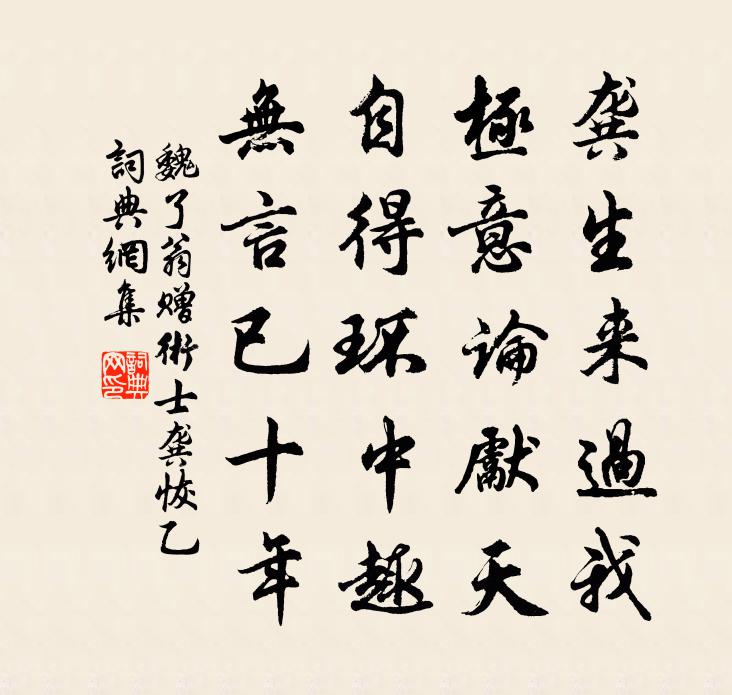 龔生来過我
極意論獻天
自得环中趣
無言已十年
魏了翁赠術士龚恢乙
詞典網集
詞典网印